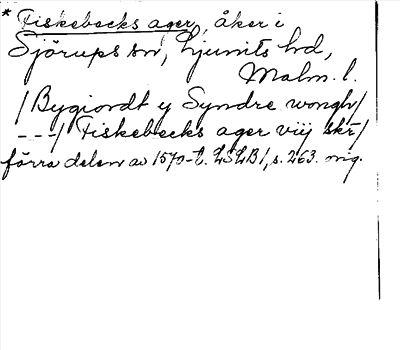 * Fiskebecks ager, åker i
Sjörups sn, Ljunits hd,
Malm. l.
/ Bygiordt y Syndre wongh/
---/ Fiskebecks ager viij skr/
förra delen av 1570-t. LSLB1, s. 263. orig.